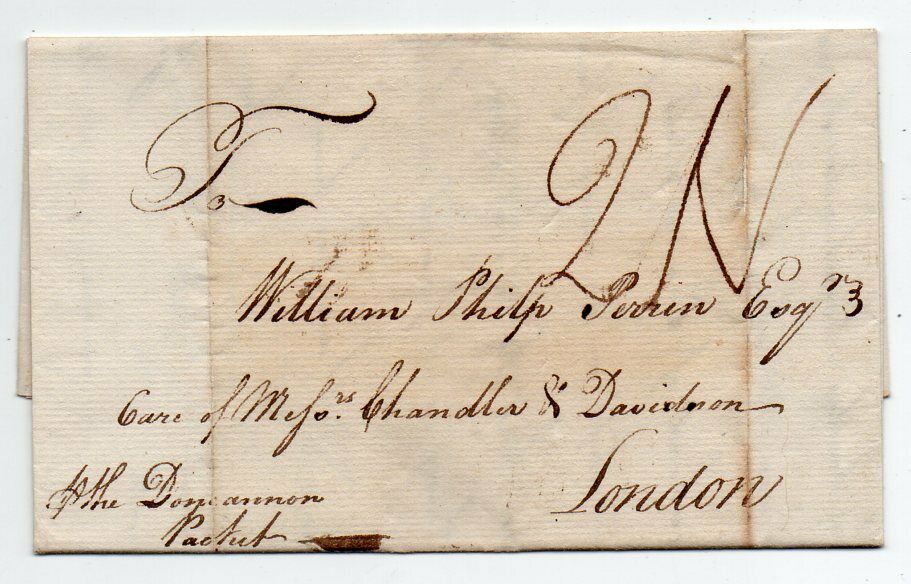 To
2N
William Philp Perrin Esqr
Care of Messrs. Chandler & Davidson
London
⅌ the Doncannon
Packet